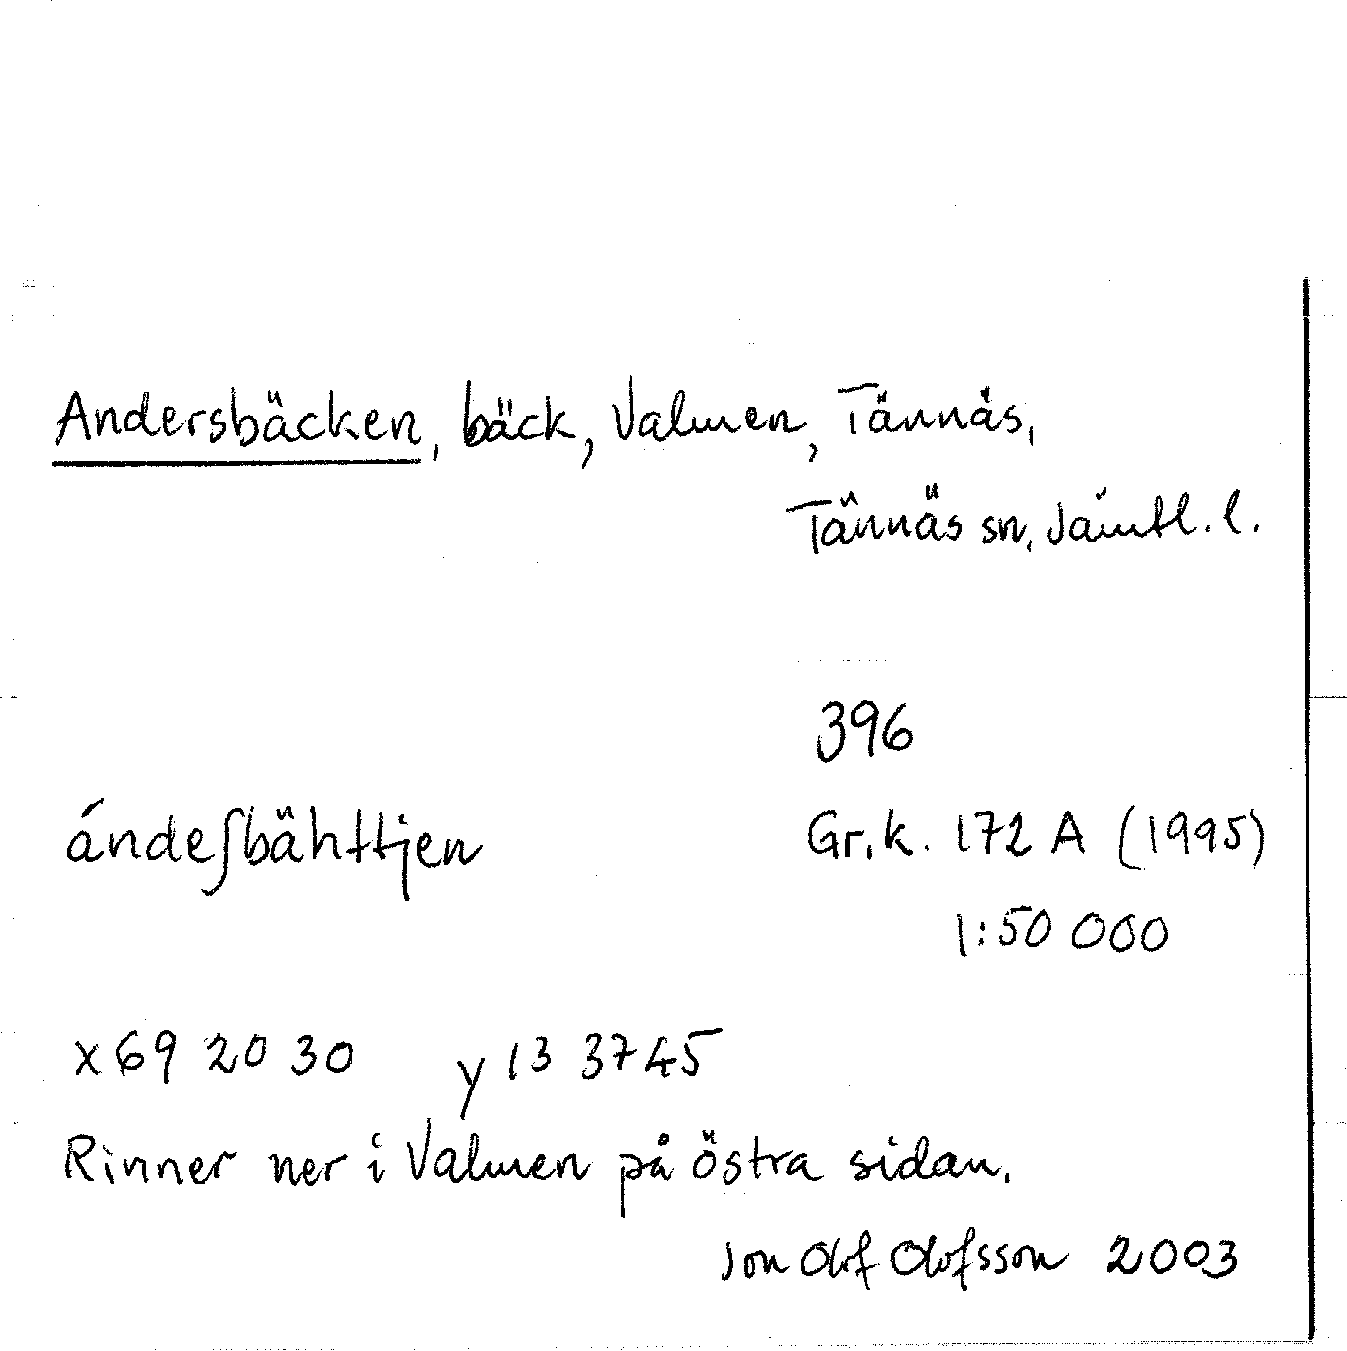 Andersbäcken, bäck, Valmen, Tännäs,
Tännäs sn, Jämtl. l.
396
ándeʃbähttjen Gr.k. 172 A (1995)
1:50 000
x 69 20 30 y 13 3745
Rinner ner i Valmen på östra sidan.
Jon Olof Olofsson 2003